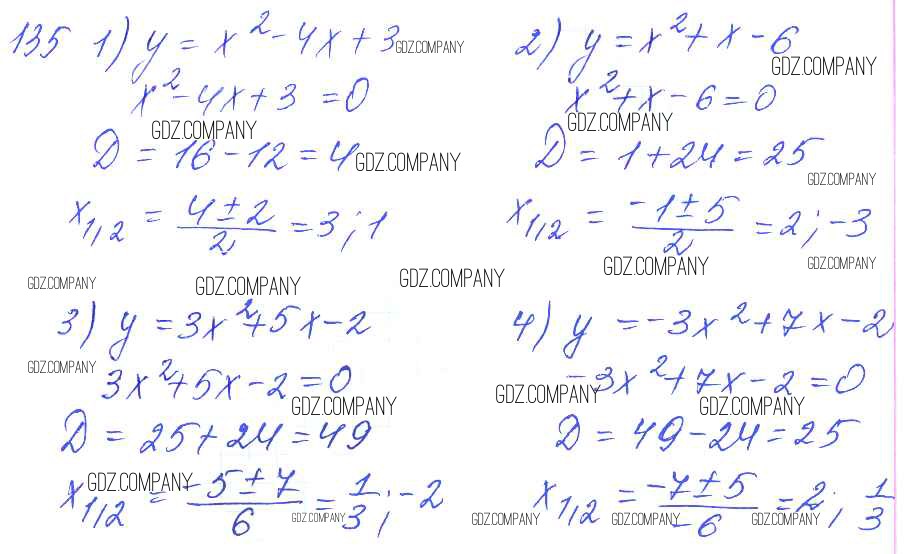 135 1) y = x² - 4x + 3 GDZ.COMPANY
x² - 4x + 3 = 0
GDZ.COMPANY
D = 16 - 12 = 4 GDZ.COMPANY
x₁,₂ = (4 ± 2)/2 = 3; 1
2) y = x² + x - 6
GDZ.COMPANY
x² + x - 6 = 0
GDZ.COMPANY
D = 1 + 24 = 25
GDZ.COMPANY
x₁,₂ = (-1 ± 5)/2 = 2; -3
GDZ.COMPANY GDZ.COMPANY
GDZ.COMPANY GDZ.COMPANY GDZ.COMPANY
3) y = 3x² + 5x - 2
GDZ.COMPANY
3x² + 5x - 2 = 0
GDZ.COMPANY
D = 25 + 24 = 49
GDZ.COMPANY
x₁,₂ = (-5 ± 7)/6 = 1/3; -2
GDZ.COMPANY
4) y = -3x² + 7x - 2
-3x² + 7x - 2 = 0
GDZ.COMPANY GDZ.COMPANY
D = 49 - 24 = 25
x₁,₂ = (-7 ± 5)/-6 = 2; 1/3
GDZ.COMPANY GDZ.COMPANY GDZ.COMPANY